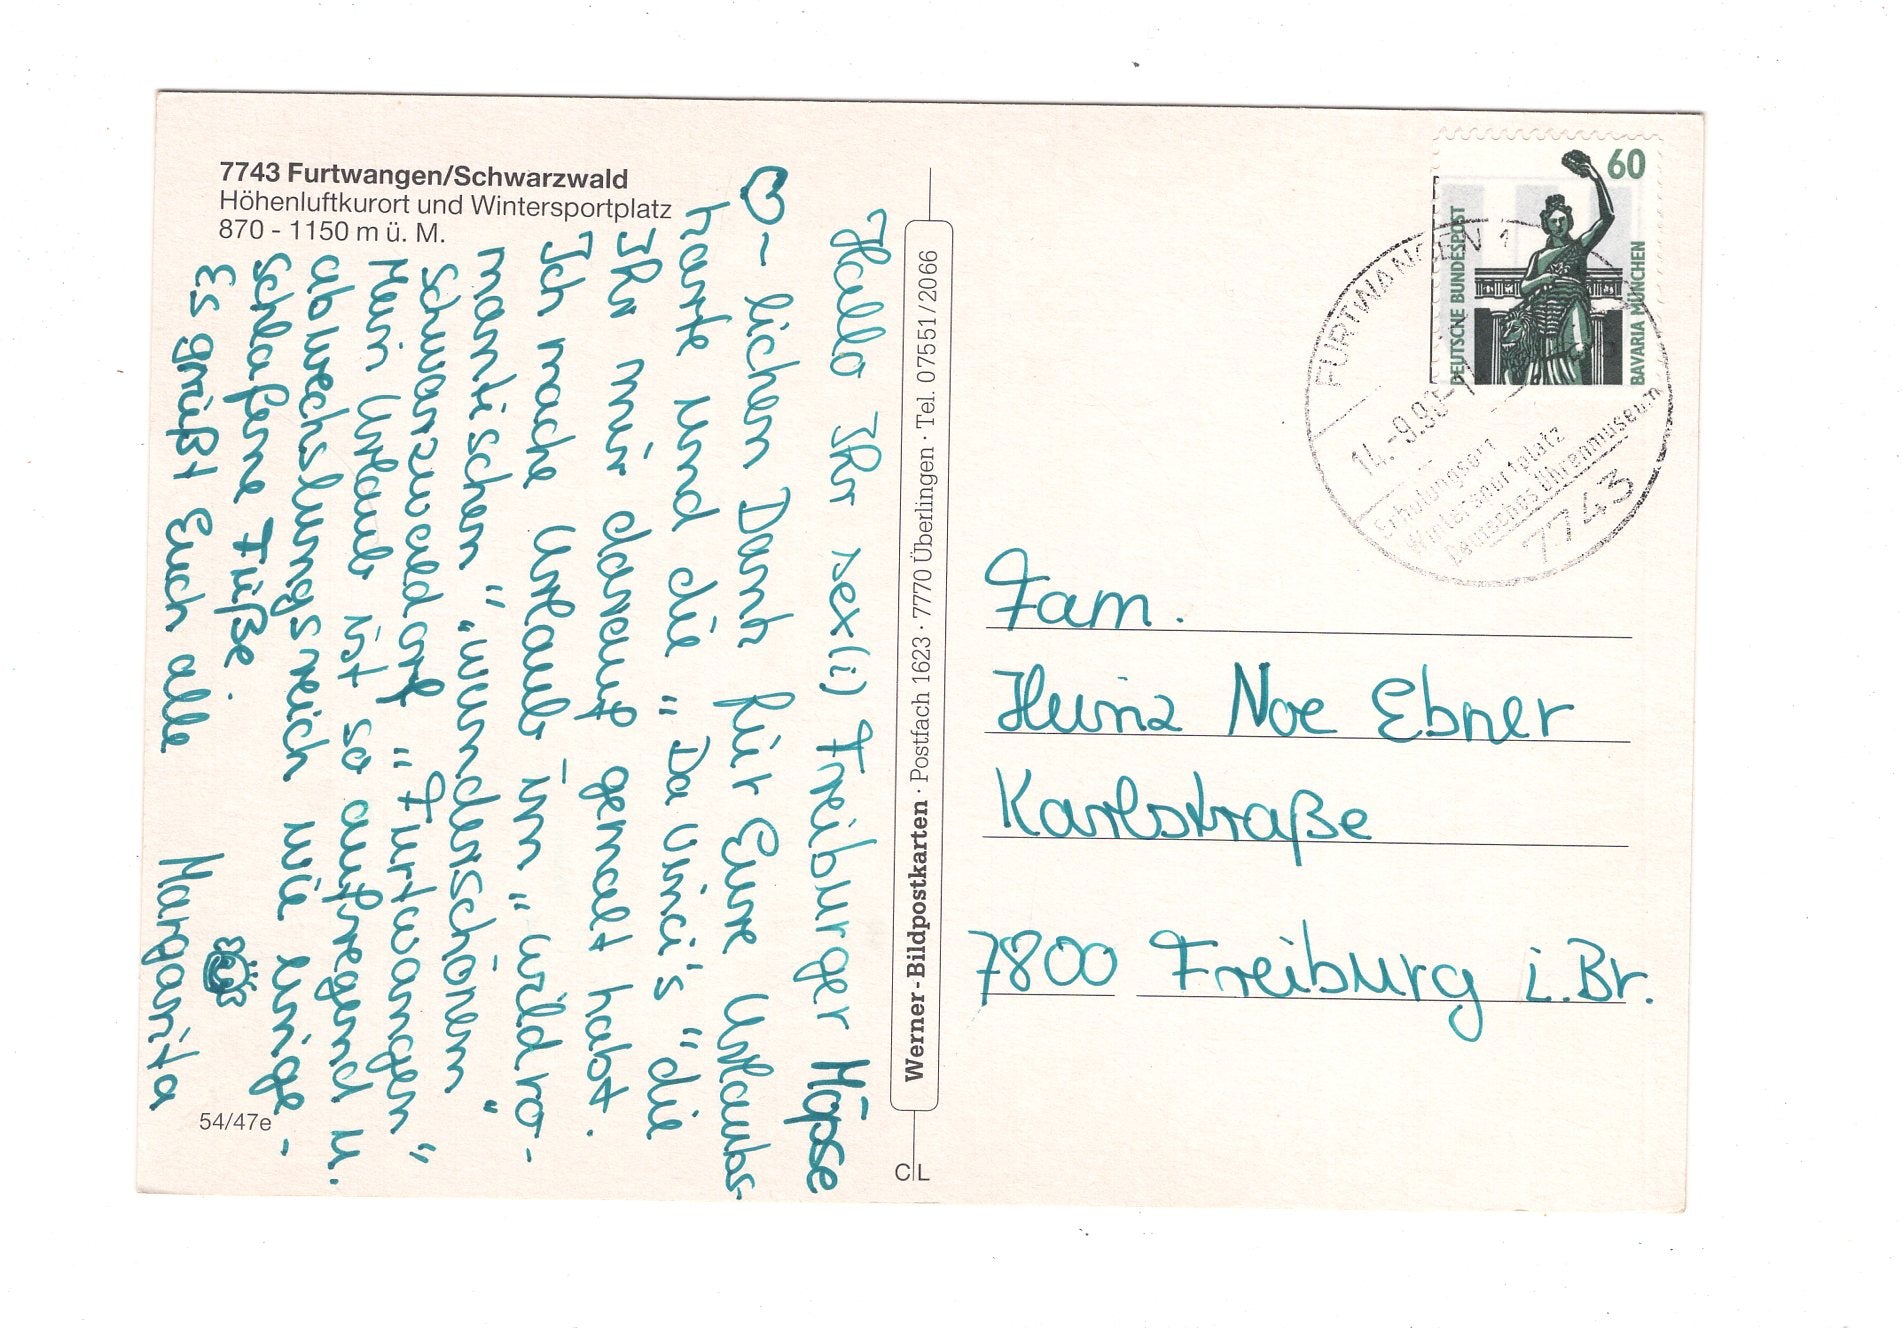 7743 Furtwangen/Schwarzwald
Höhenluftkurort und Wintersportplatz
870 - 1150 m ü. M.
Hallo Ihr sex(i) Freiburger Möpse
♡-lichen Dank für Eure Urlaubs-
karte und die "Da Vinci's" die
Ihr mir darauf gemalt habt.
Ich mache Urlaub im "wildro-
mantischen" "wunderschönen"
Schwarzwaldort "Furtwangen"
Mein Urlaub ist so aufregend u.
abwechslungsreich wie einge-
schlafene Füße.
Es grüßt Euch alle
Margarita
54/47e
Werner-Bildpostkarten · Postfach 1623 · 7770 Überlingen · Tel. 07551/2066
CL
60
DEUTSCHE BUNDESPOST
BAVARIA MÜNCHEN
FURTWANGEN 1
14.-9.90-
Erholungsort
Wintersportplatz
Deutsches Uhrenmuseum
7743
Fam.
Heinz Noe Ebner
Karlstraße
7800 Freiburg i.Br.